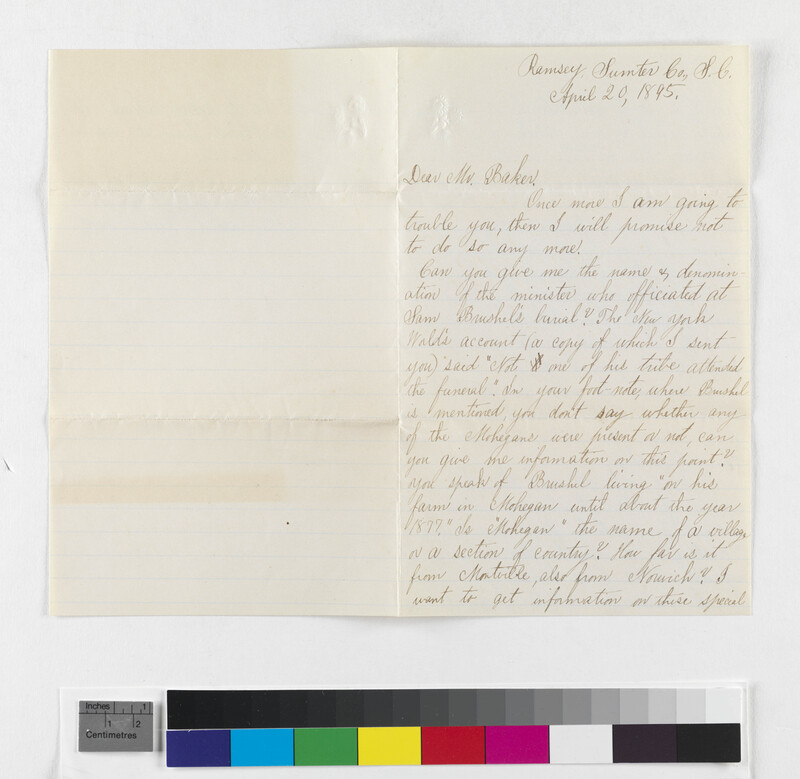 Ramsey. Sumter Co, S. C.
April 20, 1895.
Dear Mr. Baker.
Once more I am going to
trouble you, then I will promise not
to do so any more!
Can you give me the name & denomin-
ation of the minister who officiated at
Sam Brushel's burial? The New York
World's account (a copy of which I sent
you) said "Not one of his tribe attended
the funeral". In your foot-note, where Brushel
is mentioned, you don't say whether any
of the Mohegans were present or not, can
you give me information on this point?
You speak of Brushel living "on his
farm in Mohegan until about the year
1877." Is "Mohegan" the name of a village
or a section of country? How far is it
from Montville, also from Norwich? I
want to get information on these special
Inches 1
1 2
Centimetres